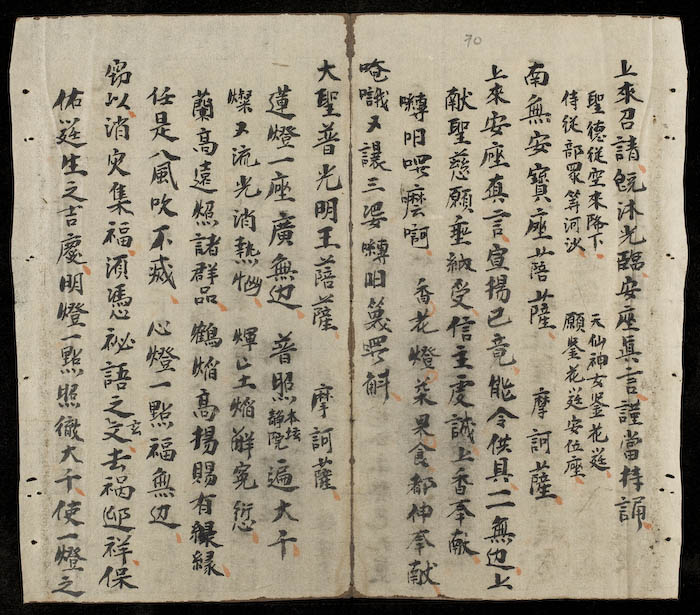 70
上來召請旣沐光臨安座真言謹當持誦
聖德從空來降下 天仙神女鑒花筵
侍從部眾等河沙 願鑒花筵安位座
南無安寶座菩薩 摩訶薩
上來安座真言宣揚已竟能令供具二無边上
献聖慈願垂納受信主虔誠上香奉献
嚩日囉麼啊 香花燈菜果食都伸奉献
唵誐又讓三婆嚩日囉斛
大聖普光明王菩薩 摩訶薩
蓮燈一座廣無边 普照本坛静院遍大千
燦又流光消熱恼 輝止土焰觧寃愆
蘭膏遠照諸群品 鶴焰高揚賜有緣
任是八風吹不滅 心燈一點福無边
窃以消灾集福湏憑祕語之玄文去禍迎祥保
佑筵生之吉慶明燈一點照徹大千使一燈之